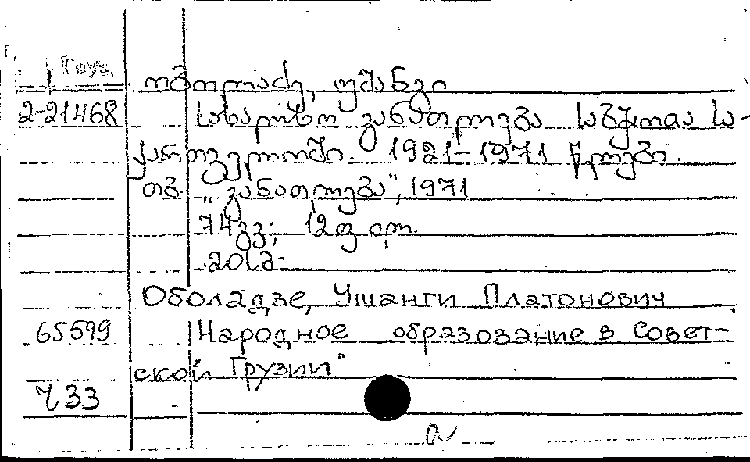 ობოლაძე, უშანგი
2-21468 სახალხო განათლება საბჭოთა სა-
ქართველოში. 1921-1971 წლები.
თბ. "განათლება", 1971
74გვ; 12ფ ილ.
20სმ.
Оболадзе, Ушанги Платонович
65599 Народное образование в Совет-
ской Грузии"
433